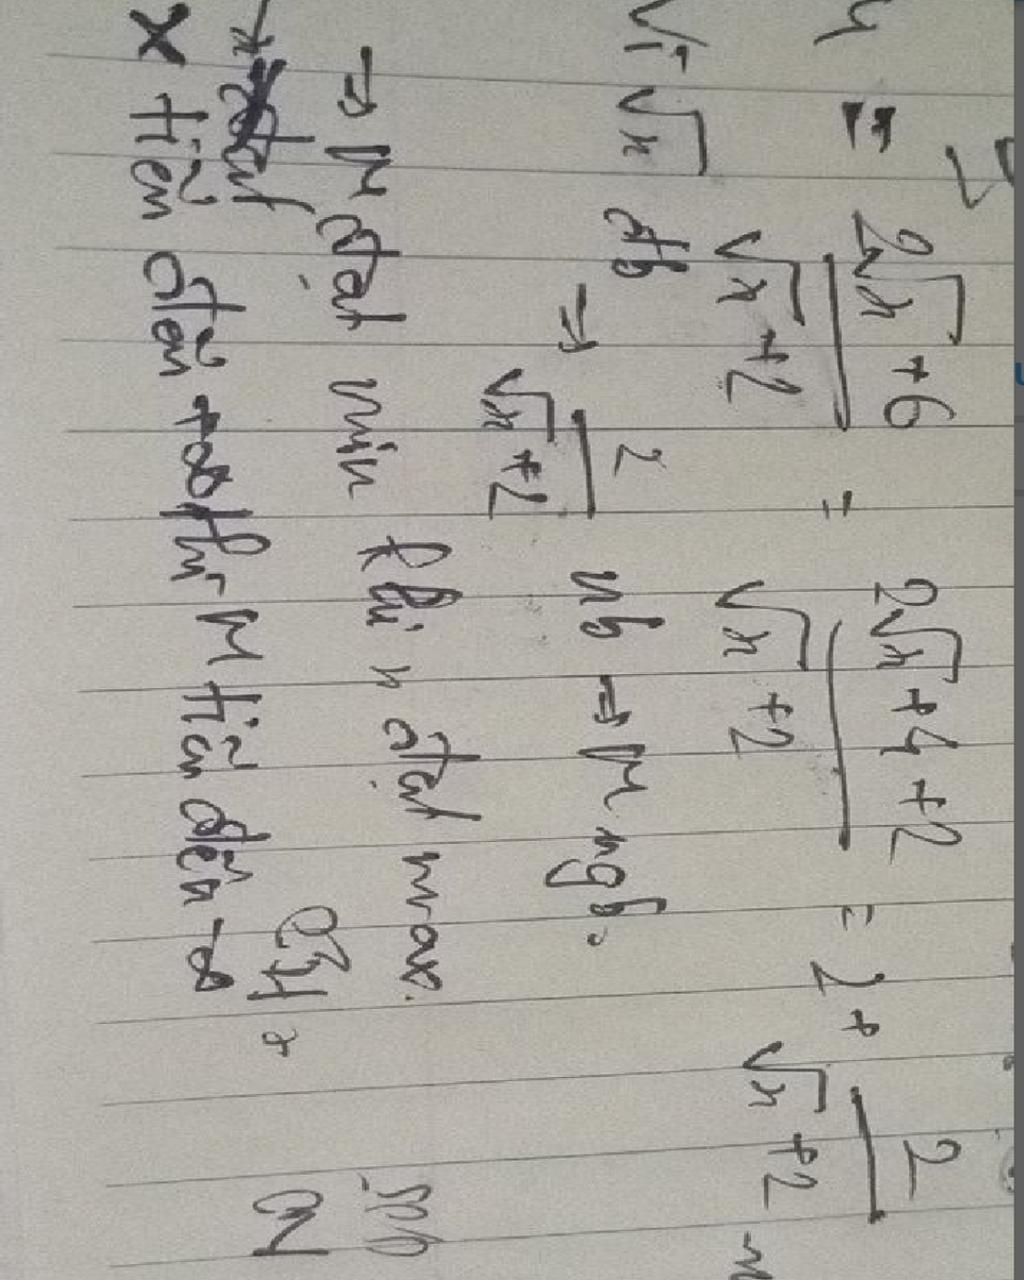 M = (2√x + 6)/(√x + 2) = (2√x + 4 + 2)/(√x + 2) = 2 + 2/(√x + 2)
Vì √x đb → 2/(√x + 2) nb → M ngb.
→ M đạt min khi x đạt max.
x tiến đến +∞ thì M tiến đến -∞